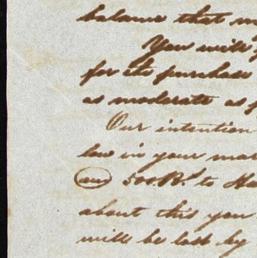 balance that
You will
for the purchase
as moderate as
Our intention
law in your
and 500 Bls to
about this you
will be lost by